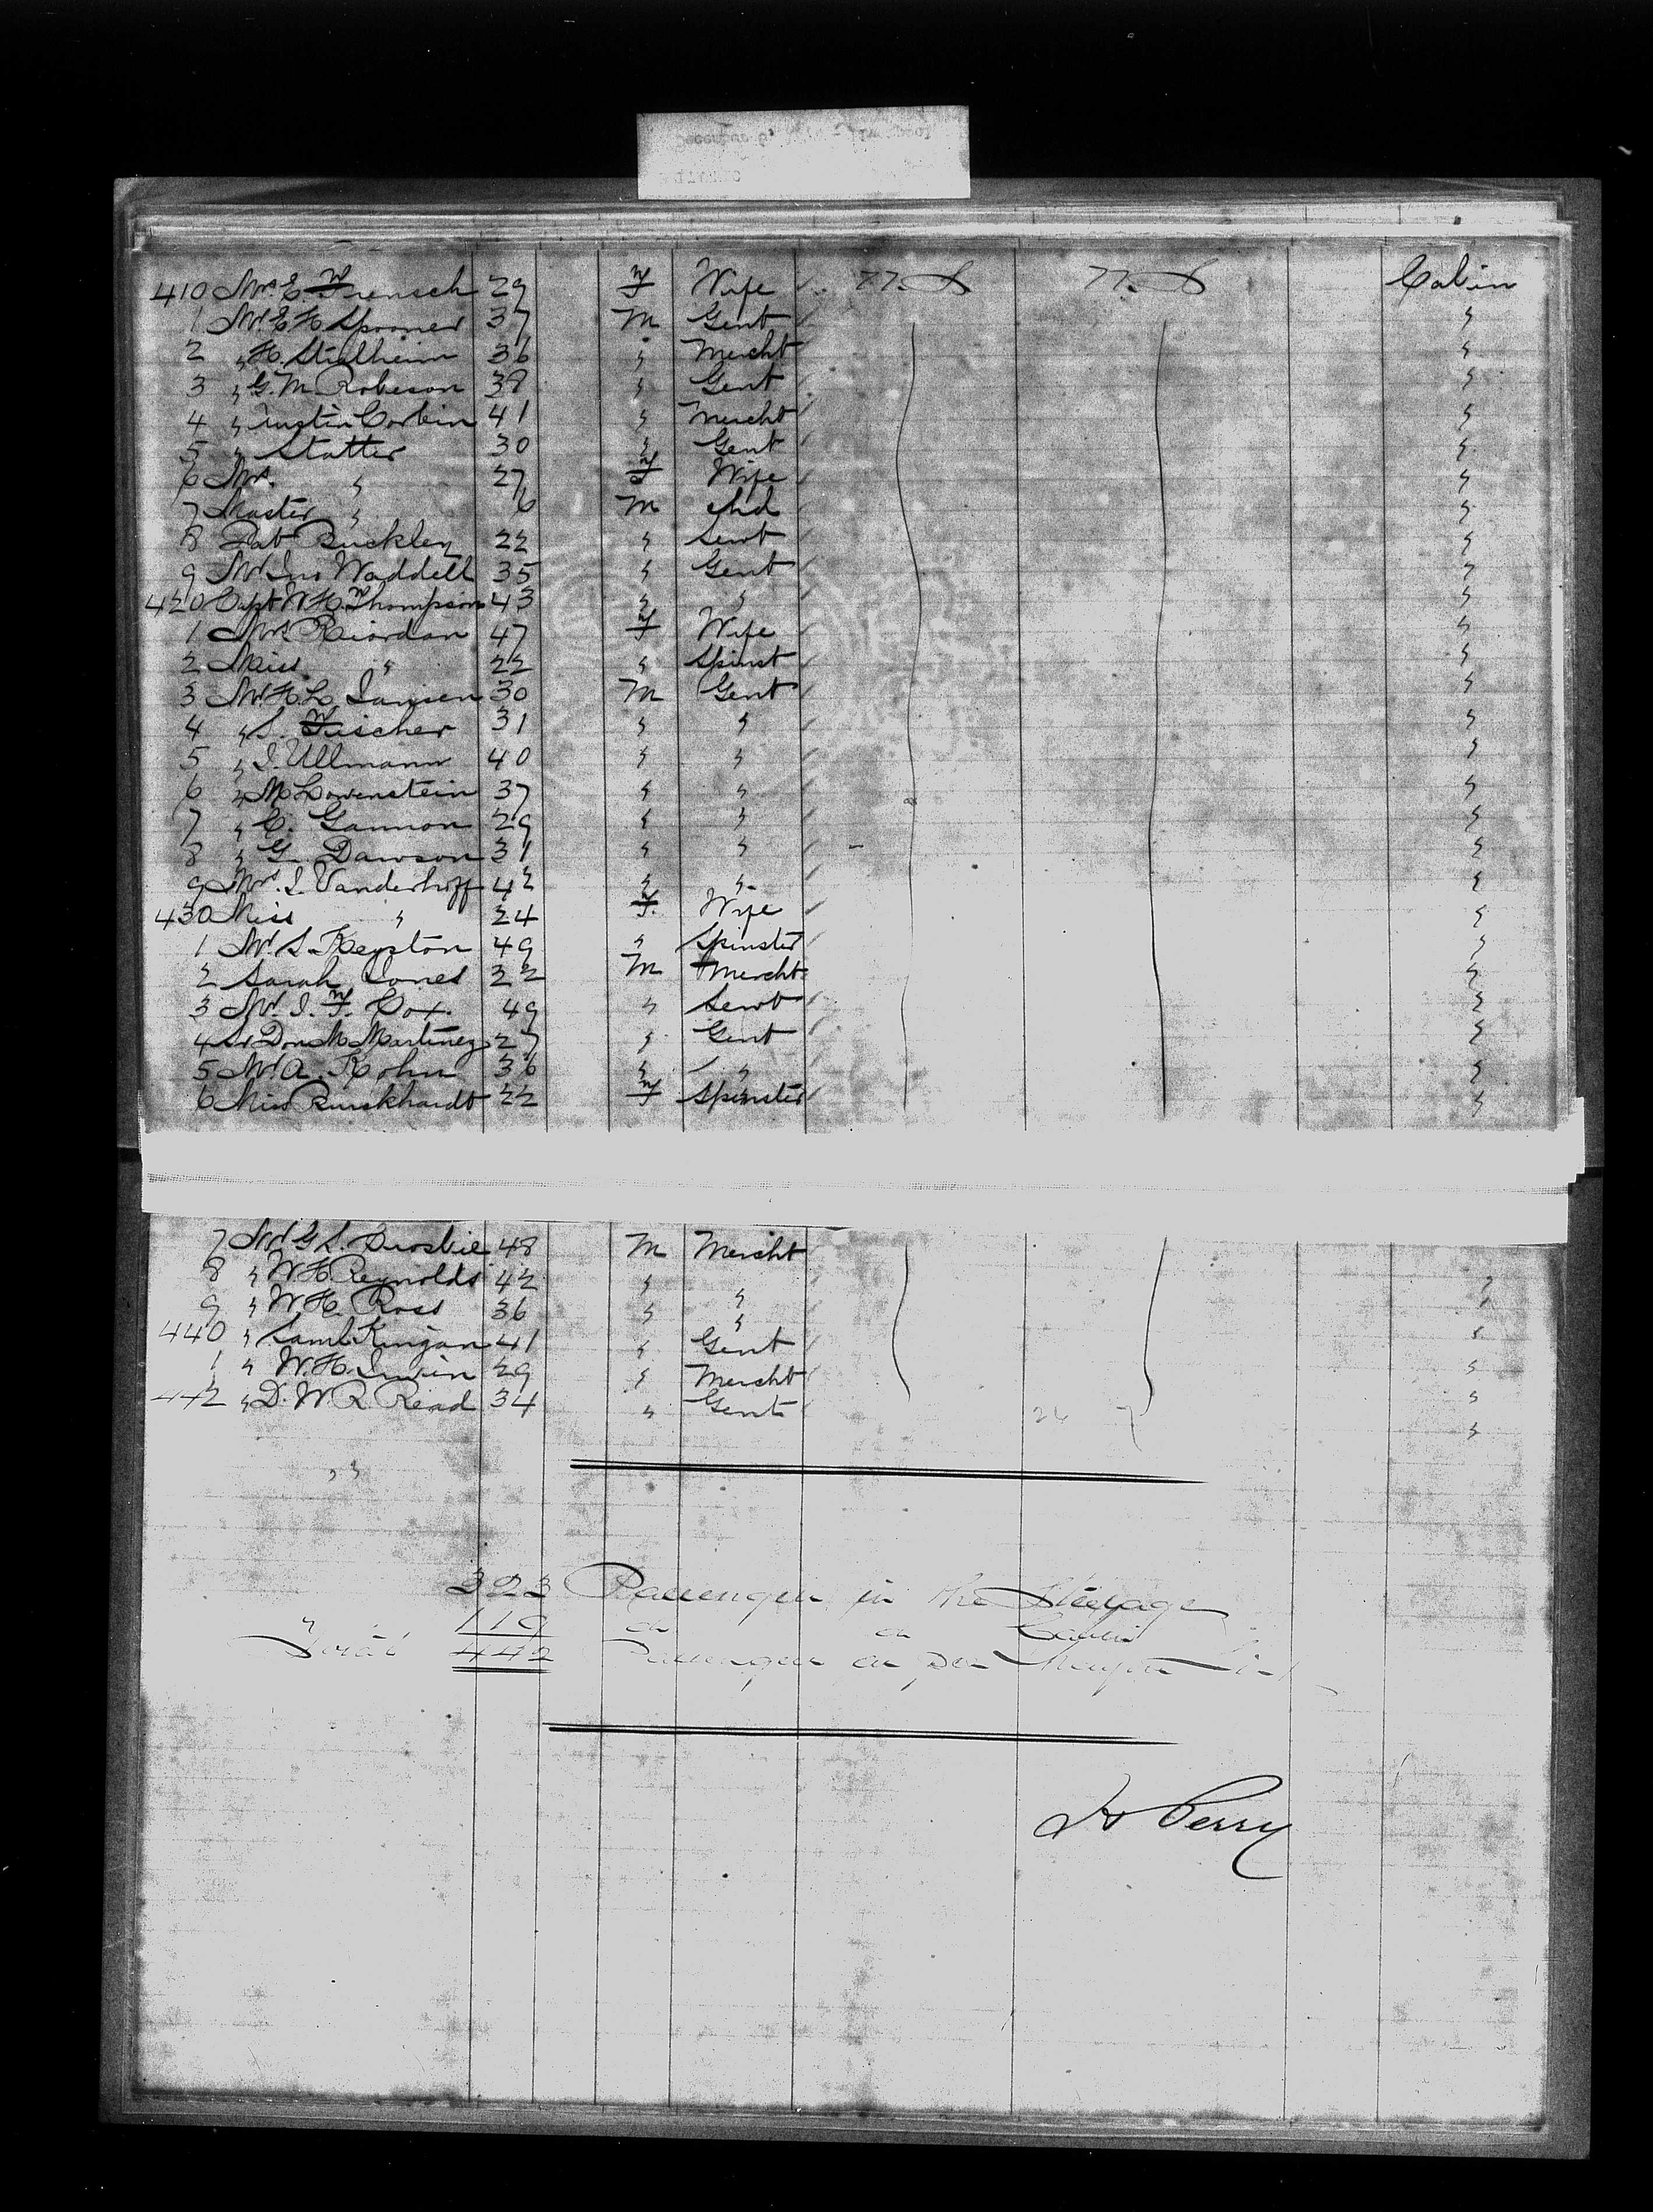 410 Mrs. E. Frensch 29 F Wife U.S. U.S. Cabin
1 Mr. E. H. Spooner 37 M Gent "
2 " H. Stielheim 36 " Mercht "
3 " G. M. Robeson 38 " Gent "
4 " Austin Corbin 41 " Mercht "
5 " Statter 30 " Gent "
6 Mrs. " 27 F Wife "
7 Master " 6 M chd "
8 Pat Buckley 22 " Servt "
9 Mr. Jno Waddell 35 " Gent "
420 Capt W. H. Thompson 43 " " "
1 Mrs. Riordan 47 F Wife "
2 Miss " 22 " Spinst "
3 Mr. H. L. Jansen 30 M Gent "
4 " S. Fischer 31 " " "
5 " I. Ullmann 40 " " "
6 " M Lowenstein 37 " " "
7 " C. Gannon 29 " " "
8 " G. Dawson 31 " " "
9 Mrs. I. Vanderhoff 42 " " "
430 Miss " 24 F. Wife "
1 Mr. S. Keyston 49 " Spinster "
2 Sarah Jones 22 M Mercht "
3 Mr. I. F. Cox. 49 " Servt "
4 Sr Don M Martinez 27 " Gent "
5 Mr. A. Kohn 36 " " "
6 Miss Burckhardt 22 F Spinster "
7 Mr G S. Crosbie 48 M Mercht
8 " W. H. Reynolds 42 " " "
9 " W. H. Ross 36 " " "
440 " Saml. Kingan 41 " Gent "
1 " W. H. Irwin 29 " Mercht "
442 " D. W. R. Read 34 " Gent "
323 Passengers in the Steerage
119 do do Cabin
Total 442 Passengers as per
Perry